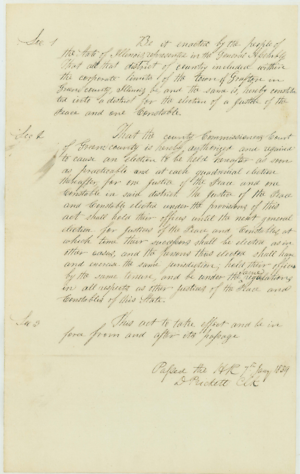 Sec 1 Be it enacted by the people of
the State of Illinois, represented in the General Assembly
That all that district of country included within
the corporate limits of the town of Grafton in
Greene county, Illinois, be, and the same is, hereby constitu
ted into a district for the election of a Justice of the
peace and one Constable.
Sec 2 That the county Commissioners Court
of Greene county is hereby authorized and required
to cause an election to be held as soon
as practicable and at each quadrennial election
thereafter for one Justice of the Peace and one
Constable in said district. The Justice of the Peace
and Constable elected under the provisions of this
act shall hold their offices until the next general
election for Justices of the Peace and Constables, at
which time their successors shall be elected as in
other cases, and the persons thus elected shall have
and exercise the same jurisdiction, hold their offices
by the same tenure, and be under the same regulations
in all respects as other Justices of the Peace and
Constables of this State.
Sec 3 This act to take effect and be in
force from and after its passage
Passed the H.R. 7th Jany 1839
D Prickett Clk